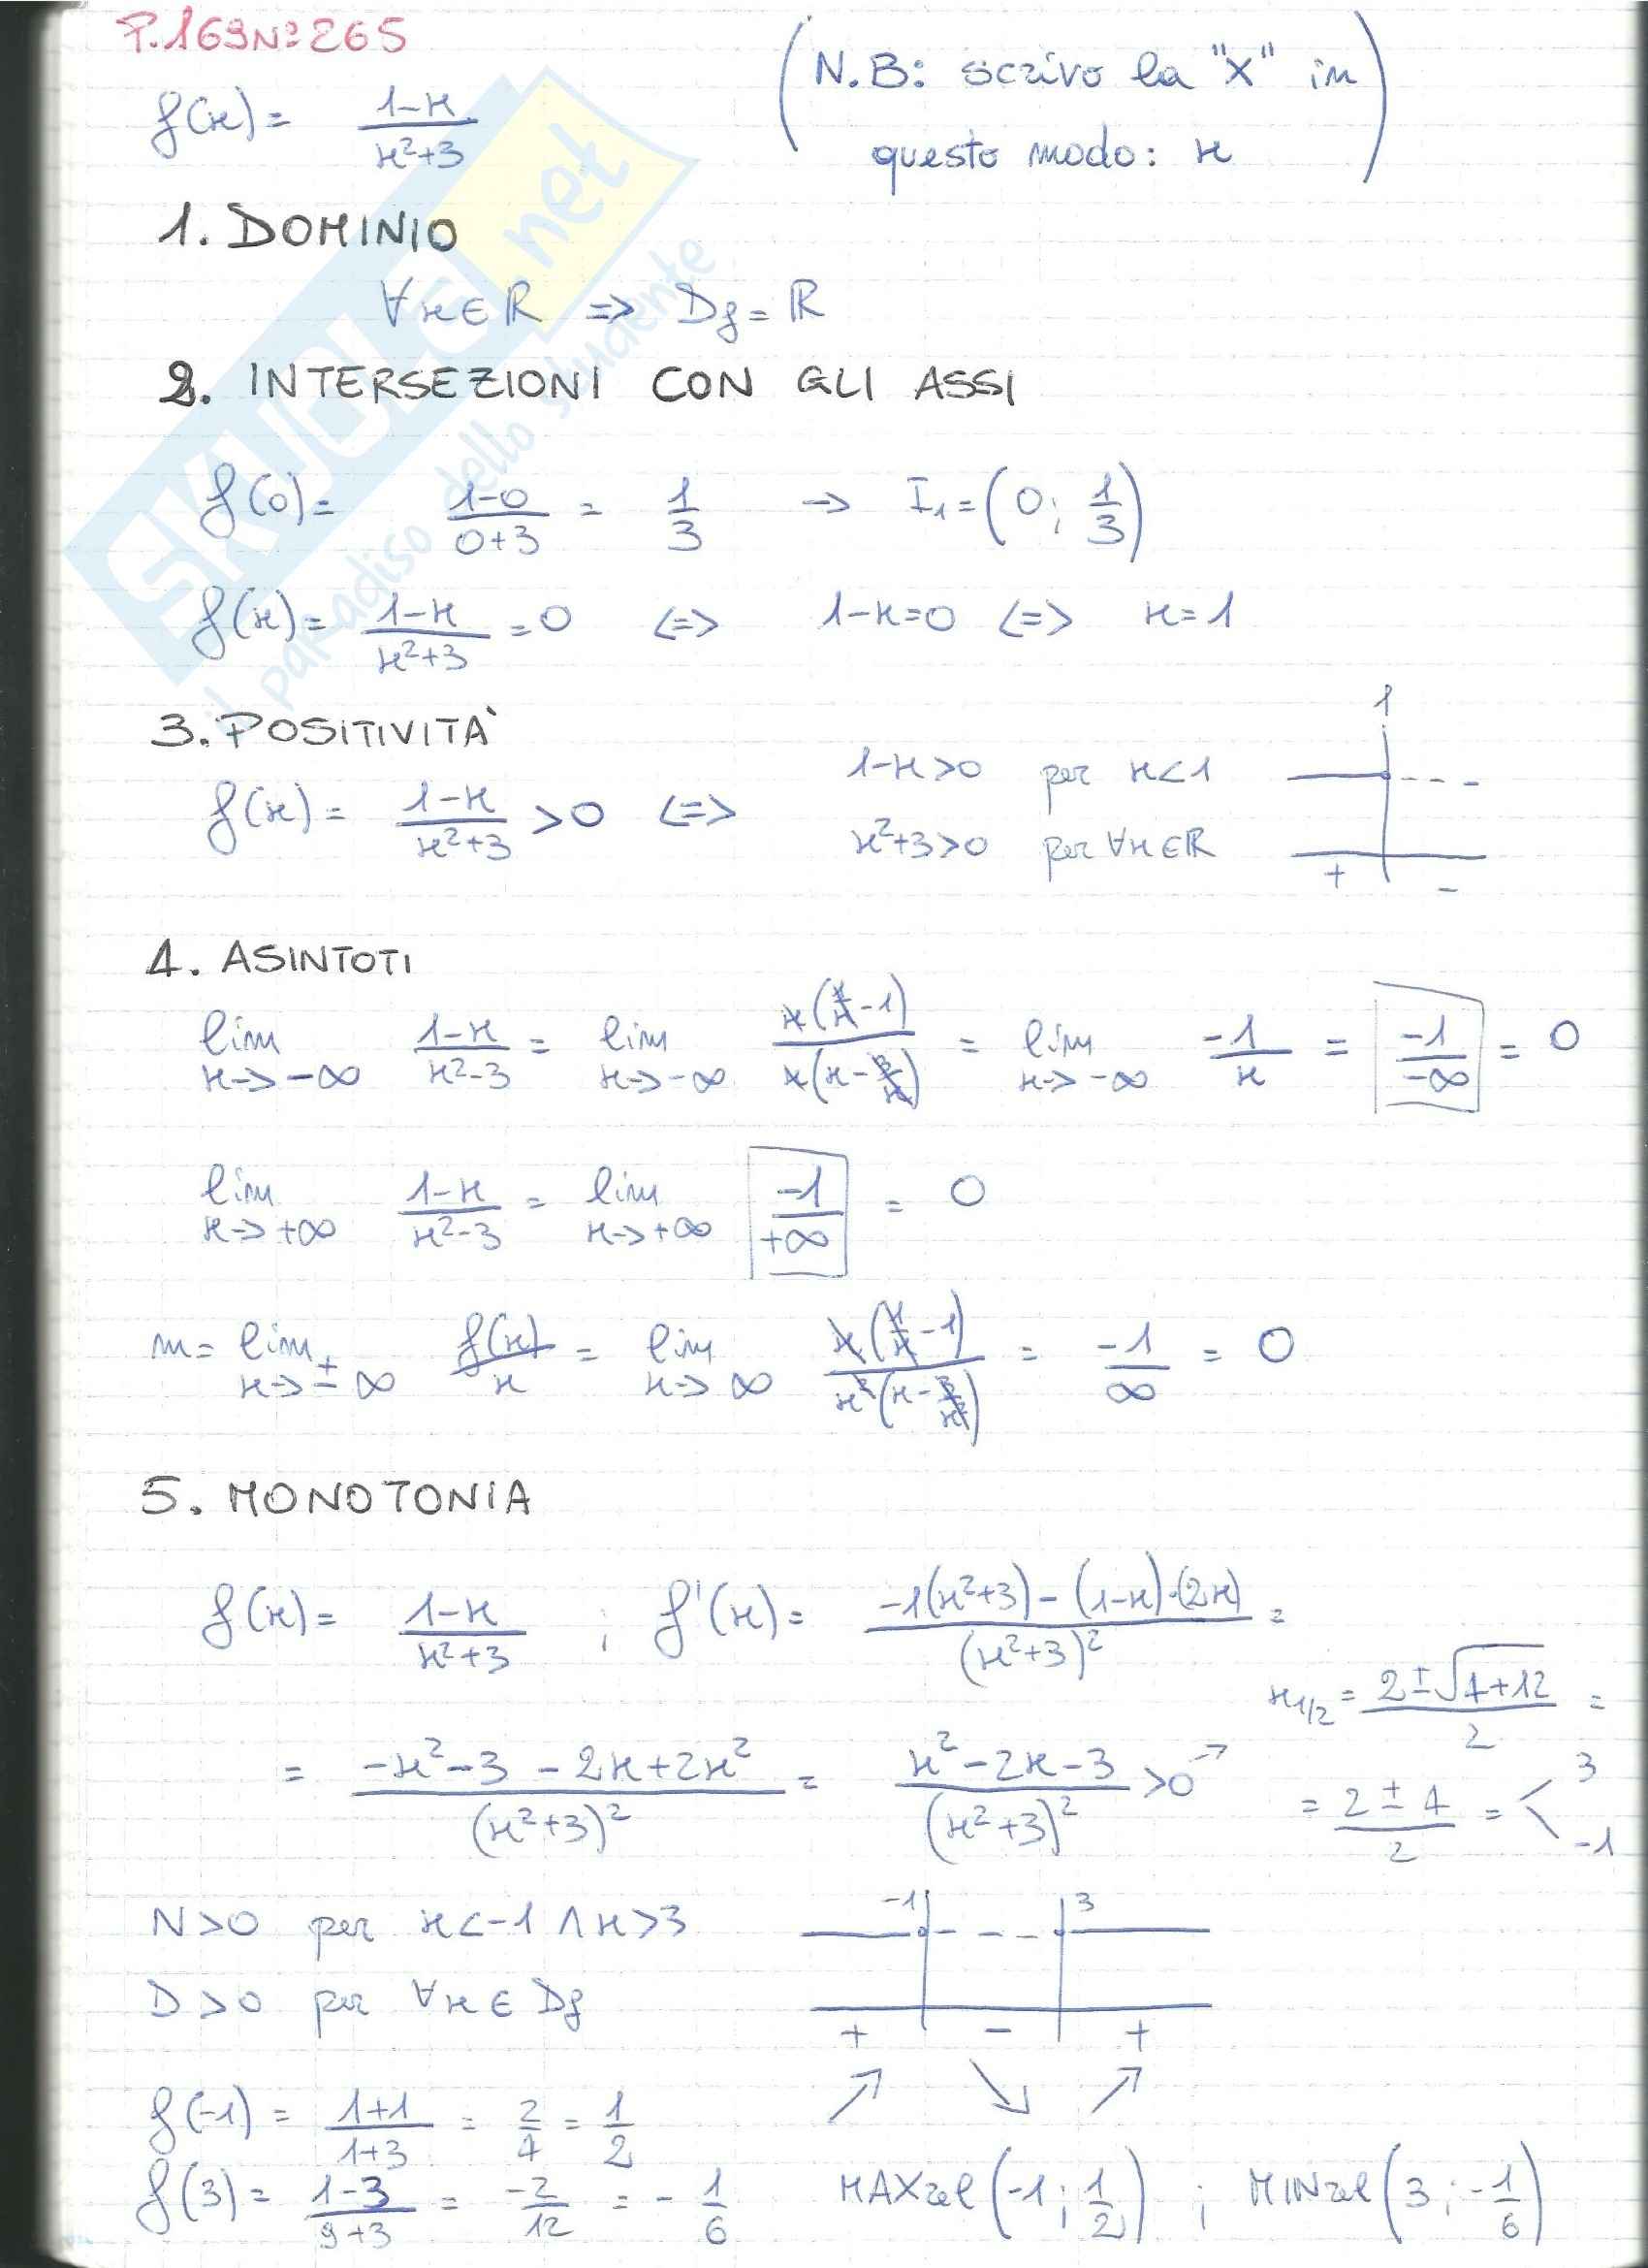 P.169 N° 265
f(x) = (1-x)/(x²+3)
(N.B: scrivo la "X" in
questo modo: x)
1. DOMINIO
∀x∈R => Df = R
2. INTERSEZIONI CON GLI ASSI
f(0) = (1-0)/(0+3) = 1/3 → I₁ = (0; 1/3)
f(x) = (1-x)/(x²+3) = 0 <=> 1-x=0 <=> x=1
3. POSITIVITÀ
f(x) = (1-x)/(x²+3) > 0 <=> 1-x>0 per x<1
x²+3>0 per ∀x∈R
1
+ -
4. ASINTOTI
lim x→-∞ (1-x)/(x²-3) = lim x→-∞ x(1/x-1)/x(x-3/x) = lim x→-∞ -1/x = -1/-∞ = 0
lim x→+∞ (1-x)/(x²-3) = lim x→+∞ -1/+∞ = 0
m = lim x→±∞ f(x)/x = lim x→∞ x(1/x-1)/x²(x-3/x²) = -1/∞ = 0
5. MONOTONIA
f(x) = (1-x)/(x²+3) ; f'(x) = (-1(x²+3)-(1-x)·(2x))/(x²+3)² =
= (-x²-3-2x+2x²)/(x²+3)² = (x²-2x-3)/(x²+3)² >0 →
x1/2 = (2±√4+12)/2 =
= (2±4)/2 = < 3
-1
N>0 per x<-1 ∧ x>3
D>0 per ∀x∈Df
-1 3
+ - +
↗ ↘ ↗
f(-1) = (1+1)/(1+3) = 2/4 = 1/2
f(3) = (1-3)/(9+3) = -2/12 = -1/6
MAXrel (-1; 1/2) ; MINrel (3; -1/6)
SKUOLA.net
il paradiso dello studente